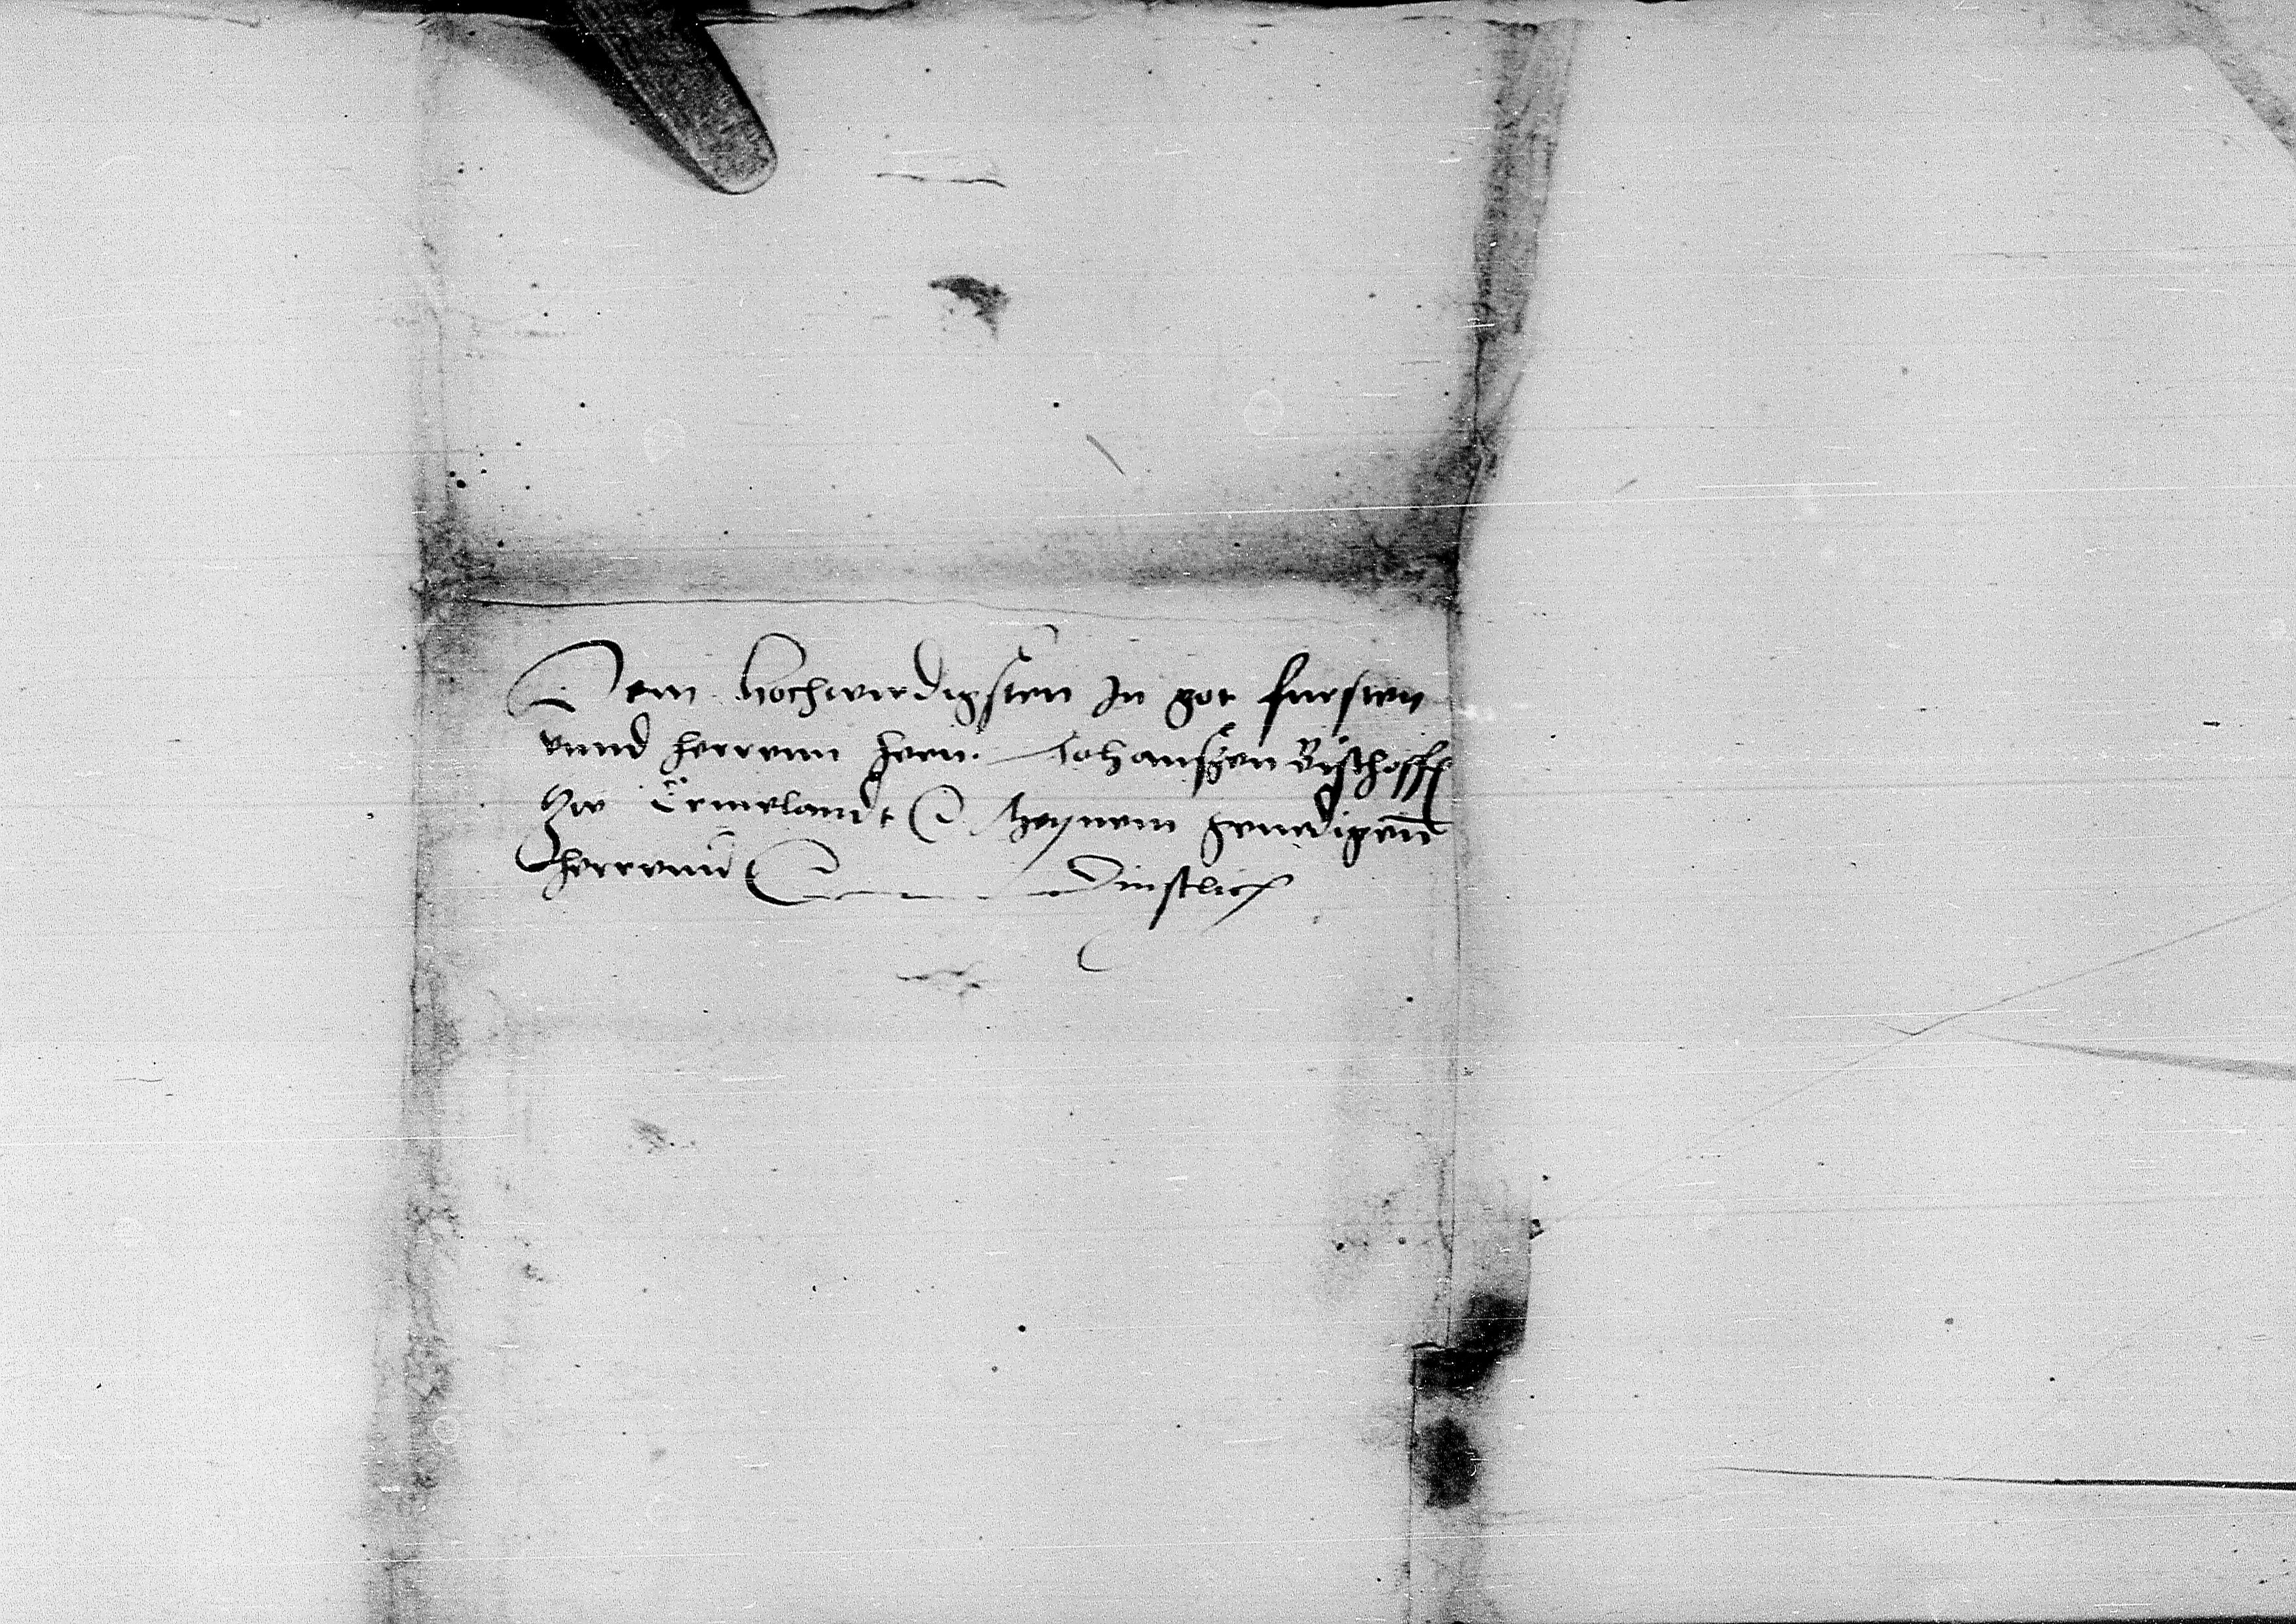 Dem hochwirdigsten In got fursten
vnnd herrenn hern Johanszen Bischoff
Zw Ermelandt Meynem genedigenn
herrenn Dinstlich